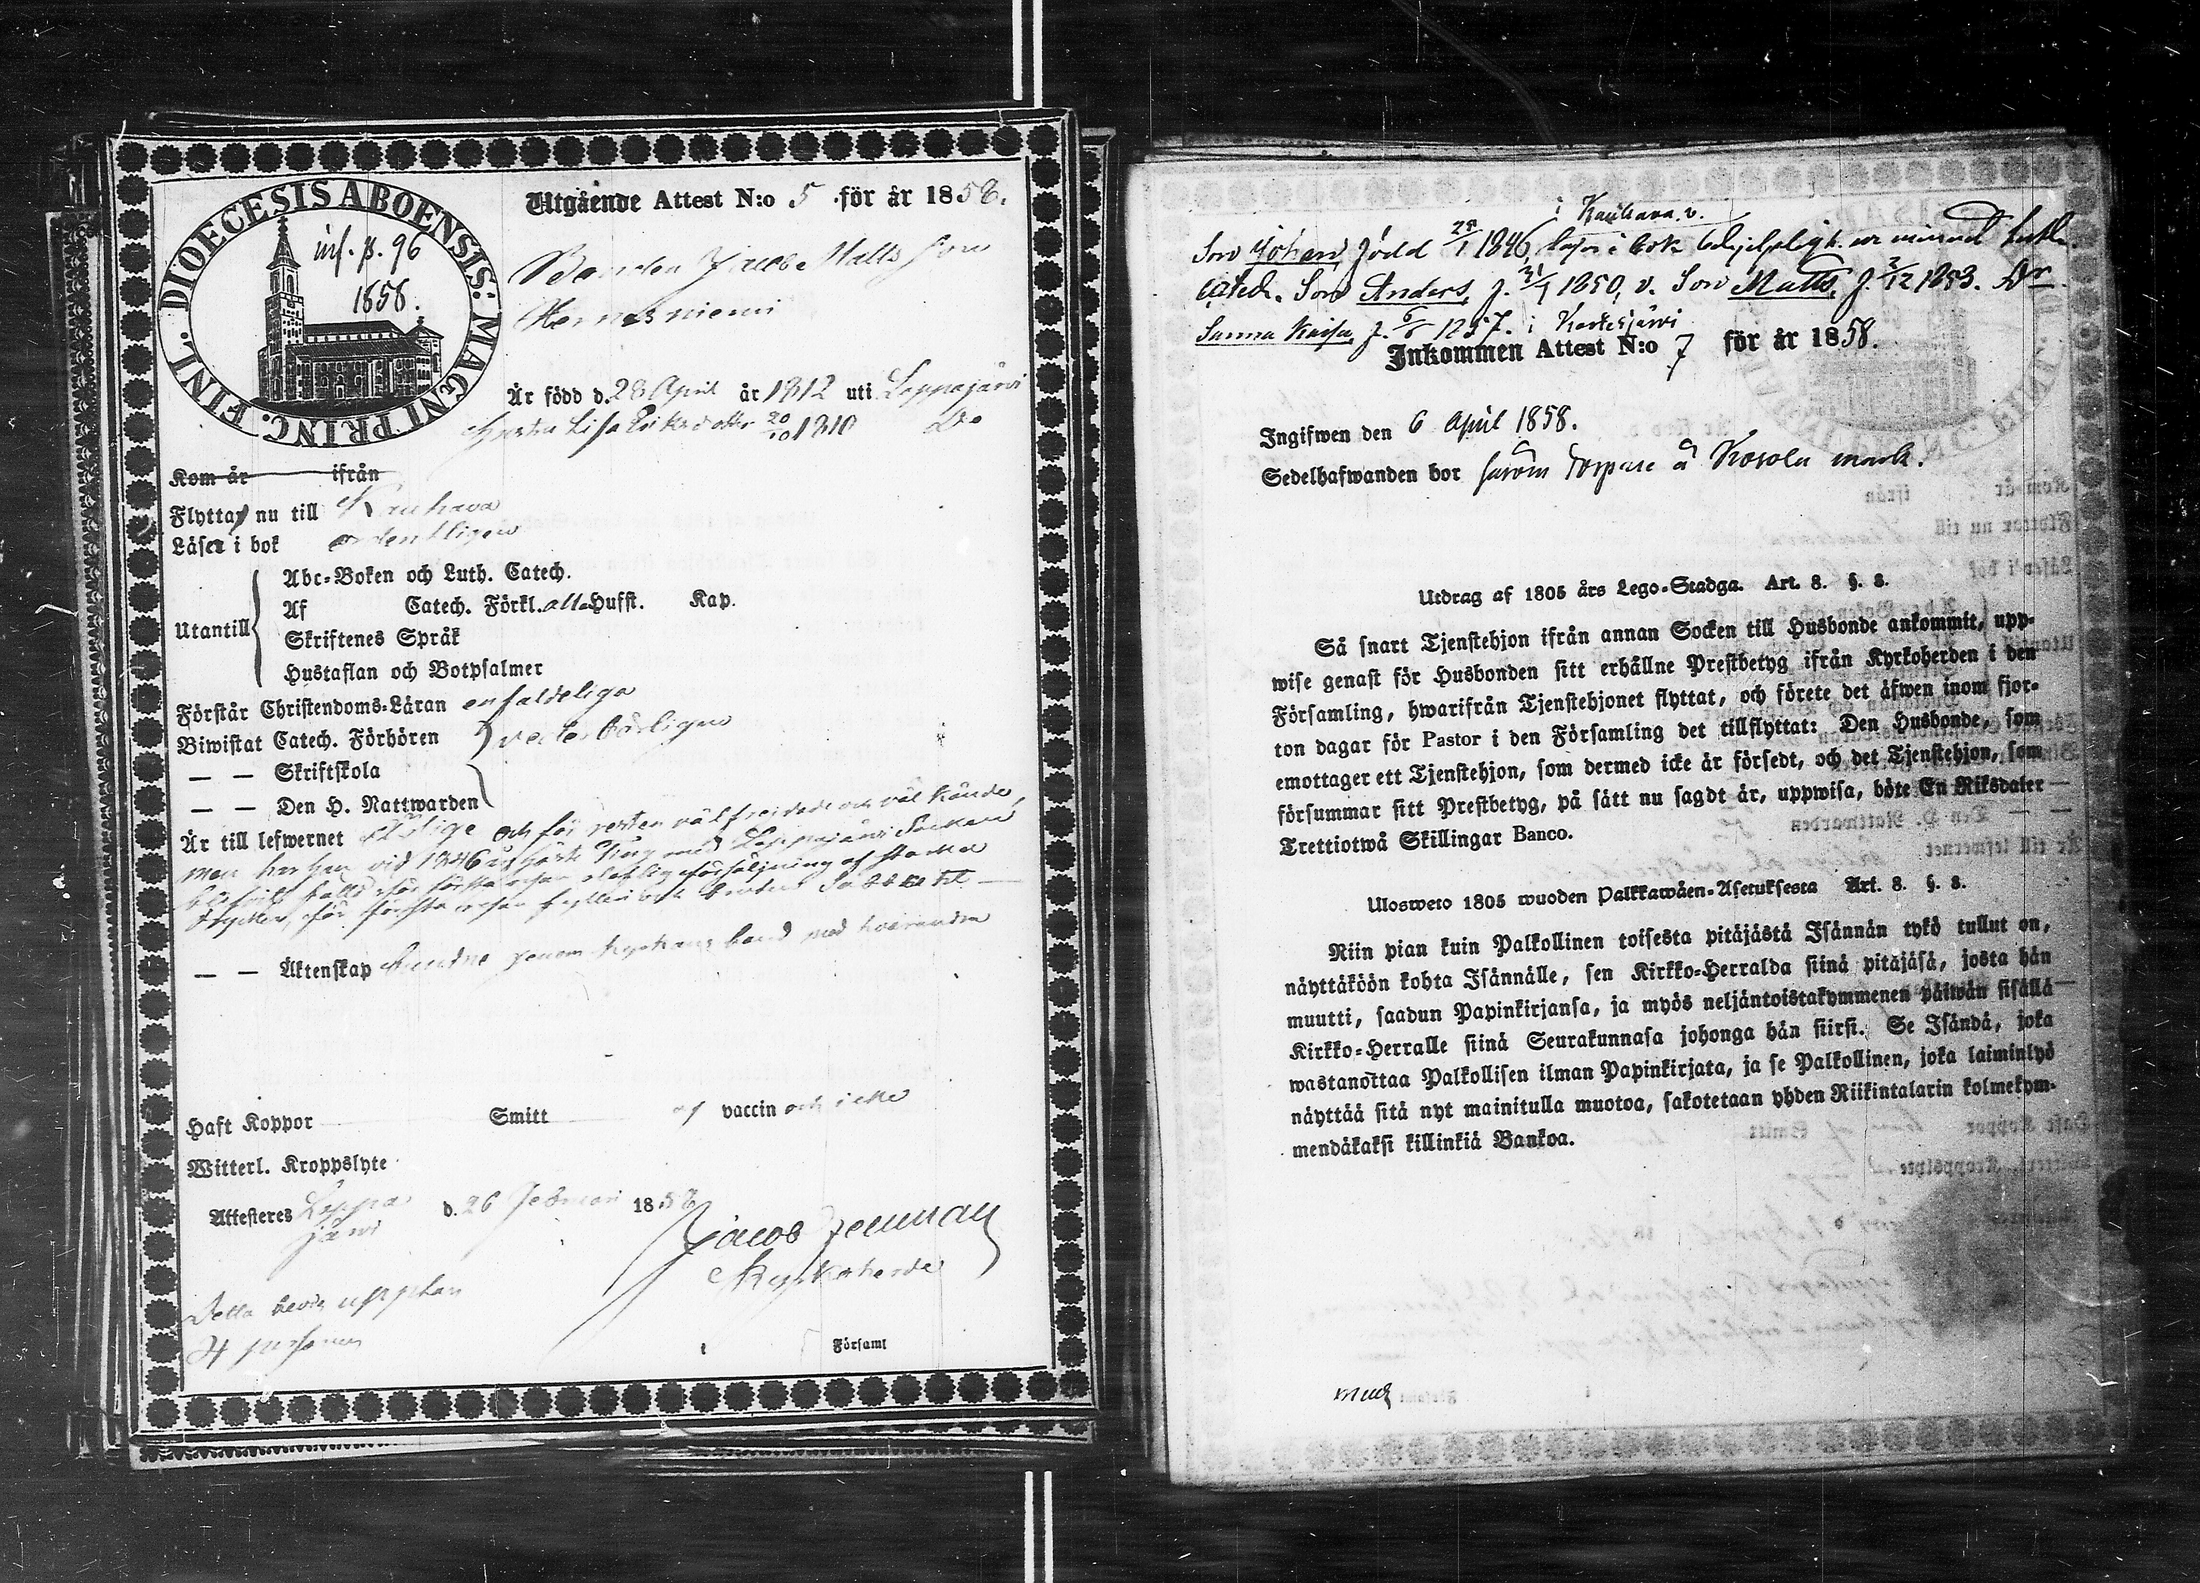 DIOECESIS ABOENSIS: MAGNI PRINC. FINL.
inf. p. 96
1858.
Utgående Attest N:o 5 för år 1858.
Bonden Jacob Matts son
Hernesniemi
Är född d. 28 April år 1812 uti Lappajärvi
Hustru Lisa Eriksdotter 20/10 1810 Do
Kom år ifrån
Flytta nu till Kauhava
Läser i bok ordentligen
Utantill
Abc-Boken och Luth. Catech.
Af Catech. Förkl. alla Hufst. Kap.
Skriftenes Språk
Hustaflan och Botpsalmer
Förstår Christendoms-Läran enfaldeliga
Biwistat Catech. Förhören vederbörligen
— — Skriftskola
— — Den H. Nattwarden
Är till lefwernet och för resten välfrejdade och väl kände,
men har han vid 1846 års Ting med Lappajärvi Socken
för första resan försäljning af starka
för första resan fylleri och
— — Äktenskap genom band med hvarandra
Haft Koppor Smitt af vaccin och icke
Witterl. Kroppslyte
Attesteres Lappa
järvi
d. 26 Februari 1858
Jacob
Kyrkoherde
Detta bevis upptar
4 personer
i Församl
i Kauhava v.
Son Johan, född 29/1 1846, i bok minnet
Catech. Son Anders, f. 31/1 1850, v. Son Matts, f. 2/12 1853. Dr
Sanna Kaisa, f. 6/6 1857. i Kortesjärvi
Inkommen Attest N:o 7 för år 1858.
Ingifwen den 6 April 1858.
Sedelhafwanden bor såsom torpare å Kosola mark.
Utdrag af 1805 års Lego-Stadga. Art. 8. §. 8.
Så snart Tjenstehjon ifrån annan Socken till Husbonde ankommit, upp-
wise genast för Husbonden sitt erhållne Prestbetyg ifrån Kyrkoherden i den
Församling, hwarifrån Tjenstehjonet flyttat, och förete det äfwen inom fjor-
ton dagar för Pastor i den Församling det tillflyttat: Den Husbonde, som
emottager ett Tjenstehjon, som dermed icke är försedt, och det Tjenstehjon, som
försummar sitt Prestbetyg, på sätt nu sagdt är, uppwisa, böte En Riksdaler
Trettiotwå Skillingar Banco.
Ulosweto 1805 wuoden Palkkawäen-Asetuksesta Art. 8. §. 8.
Niin pian kuin Palkollinen toisesta pitäjästä Isännän tykö tullut on,
näyttäköön kohta Isännälle, sen Kirkko-Herralda siinä pitäjäsä, josta hän
muutti, saadun Papinkirjansa, ja myös neljäntoistakymmenen päiwän sisällä
Kirkko-Herralle siinä Seurakunnasa johonga hän siirsi. Se Isändä, joka
wastanottaa Palkollisen ilman Papinkirjata, ja se Palkollinen, joka laiminlyö
näyttää sitä nyt mainitulla muotoa, sakotetaan yhden Riikintalarin kolmekym-
mendäkaksi killinkiä Bankoa.